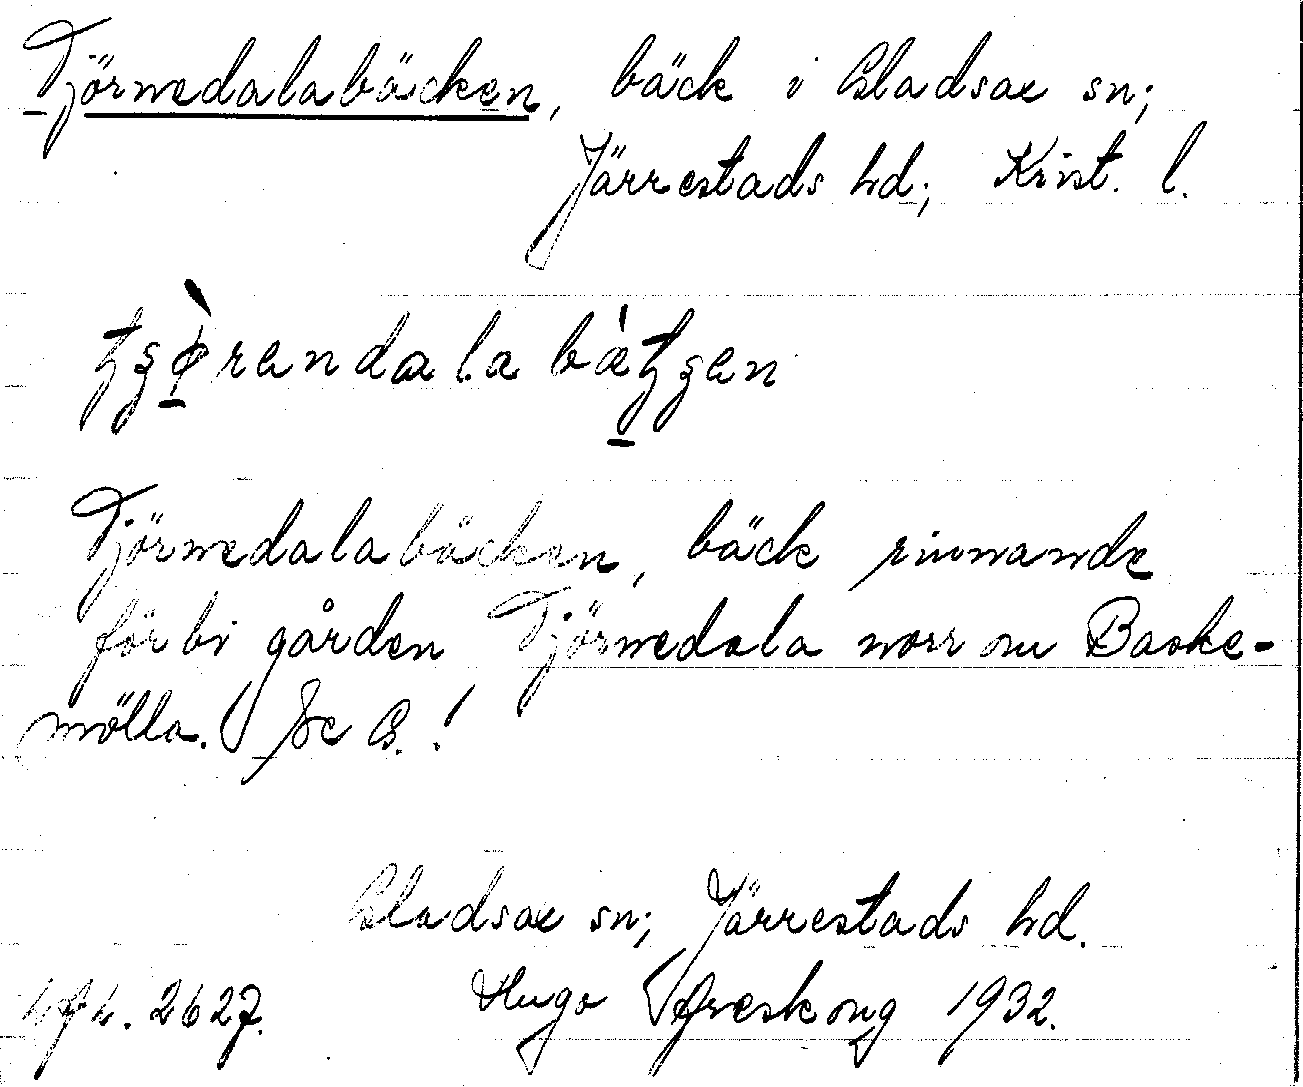 Tjörnedalabäcken, bäck i Gladsax sn;
Järrestads hd; Krist. l.
bäck rinnande
Tjörnedalabäcken, bäck rinnande
förbi gården Tjörnedala norr om Baske-
mölla. Se G.!
Gladsax sn; Järrestads hd.
2627. Hugo Areskoug 1932.